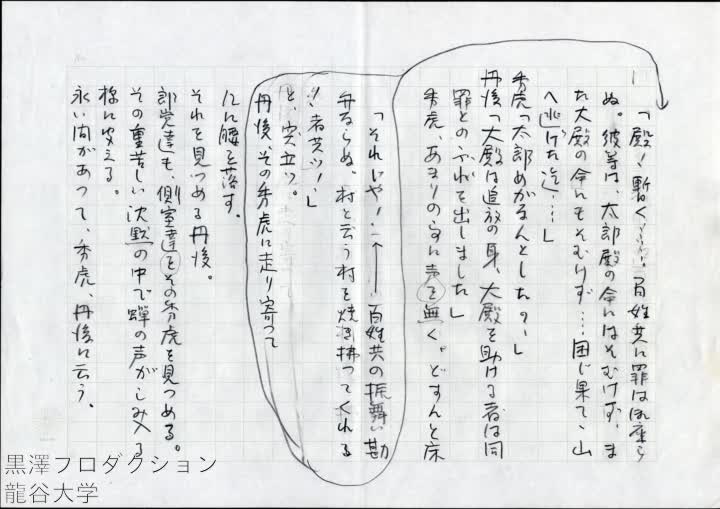 「殿！暫く……百姓共に罪は御座ら
ぬ。彼等は、太郎殿の命にはそむけず、ま
た大殿の命にもそむけず……困じ果て、山
へ逃げた迄……」
秀虎「太郎めがなんとしたの、」
丹後「大殿は追放の身、大殿を助ける者は同
罪とのふれを出しました」
秀虎、あまりの
声を無く。どすんと床
「それじや！
百姓共の振舞い勘
弁ならぬ。村と云う村を焼き拂つてくれる
者共ッ！」
と、突立つ。
丹後、その秀虎に走り寄つて
に腰を落す。
それを見つめる丹後。
郎党達も、側室達もその秀虎を見つめる。
その重苦しい沈黙の中で蟬の声がしみ入る
様に冴える。
永い間があつて、秀虎、丹後に云う、
黒澤プロダクション
龍谷大学